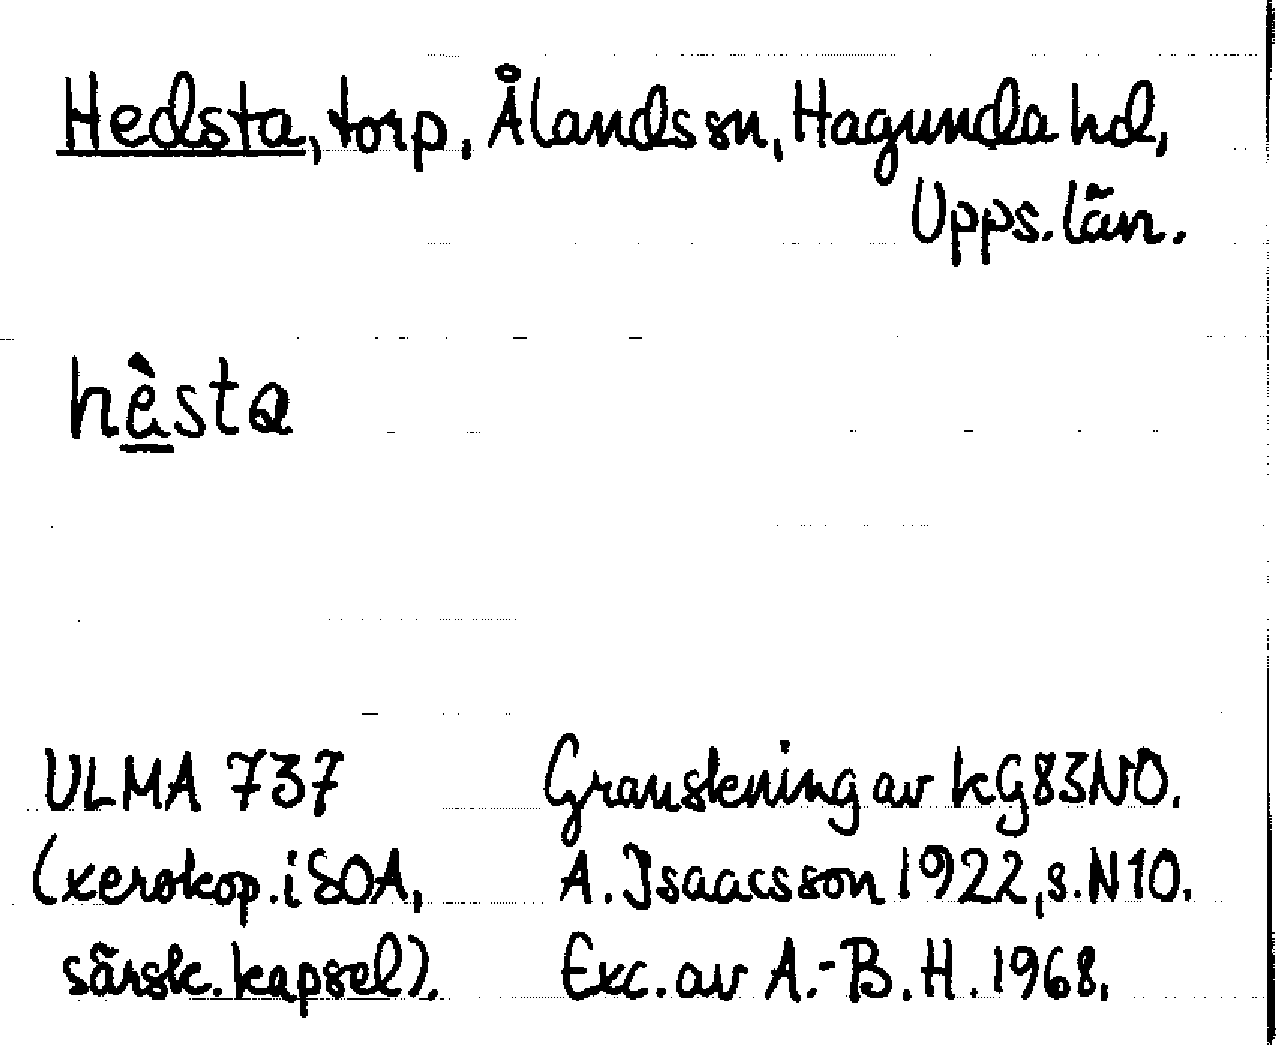 Hedsta, torp, Ålands sn, Hagunda hd,
Upps. län.
hèsta
ULMA 737
(xerokop. i SOA,
särsk. kapsel).
Granskning av kG83NO.
A. Isaacsson 1922, s. N10.
Exc. av A.-B. H. 1968.